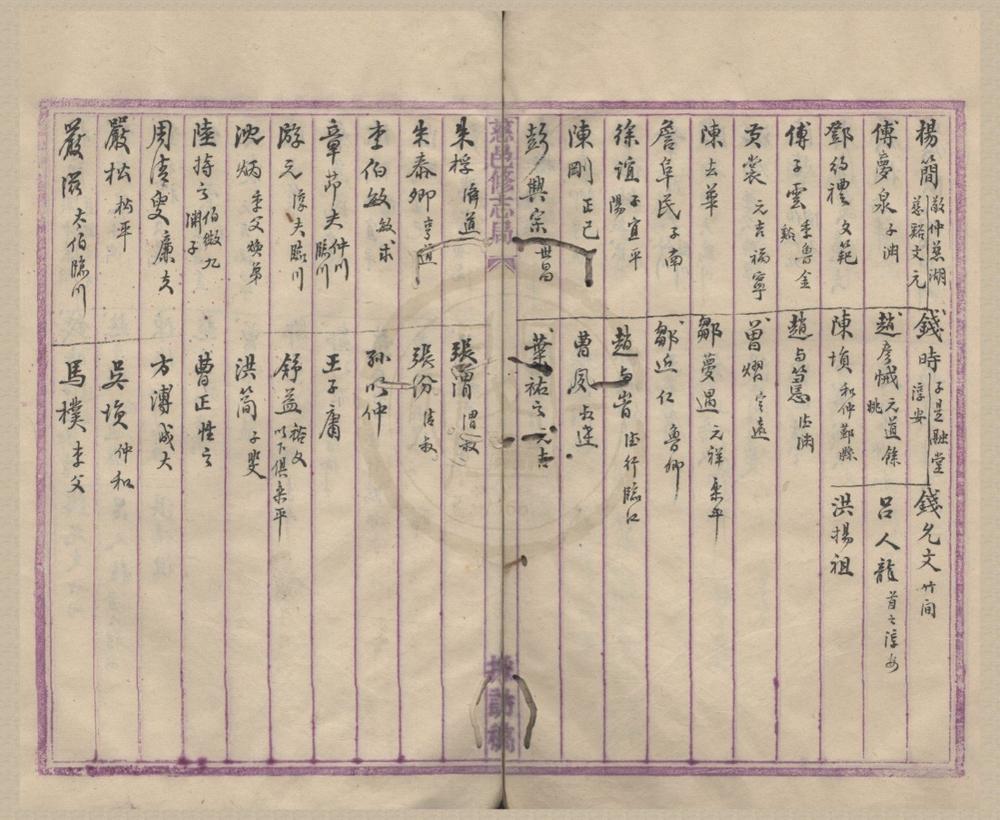 楊簡 敬仲慈湖 慈谿文元 錢時 子是融堂 淳安 錢允文 竹間
傅夢泉 子淵 趙彥悈 元道餘姚 呂人龍 首之淳安
鄧約禮 文範 陳塤 和仲鄞縣 洪揚祖
傅子雲 季魯金谿 趙與𥲅 德淵
黃裳 元吉福寧 曾熠 定遠
陳去華 鄒夢遇 元祥樂平
詹阜民 子南 鄒近仁 魯卿
徐誼 子宜平陽 趙與訔 德行臨江
陳剛 正己 曹夙 叔達
彭興宗 世昌 葉祐之 元吉
慈邑修志局
採訪稿
朱桴 濟道 張渭 渭叔
朱泰卿 亨道 張汾 清叔
李伯敏 敏求 孫明仲
章節夫 仲川臨川 王子庸
游元 淳夫臨川 舒益 裕父 以下俱樂平
沈炳 季父煥弟 洪簡 子斐
陸持之 伯微九淵子 曹正 性之
周清叟 廉夫 方溥 成大
嚴松 松年 吳塤 仲和
嚴滋 太伯臨川 馬樸 季父